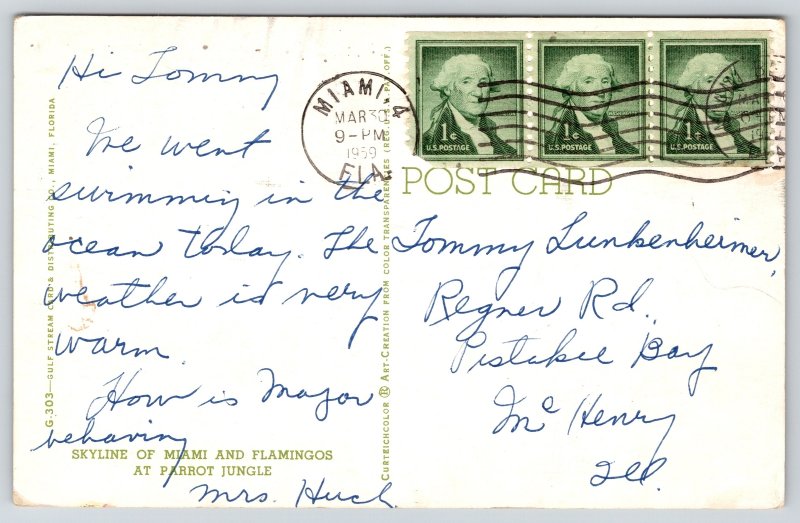 Hi Tommy
We went
swimming in the
ocean today. The
weather is very
warm.
How is Major
behaving
Mrs. Huck
SKYLINE OF MIAMI AND FLAMINGOS
AT PARROT JUNGLE
G-303—GULF STREAM CARD & DISTRIBUTING CO., MIAMI, FLORIDA
CURTEICHCOLOR ® ART-CREATION FROM COLOR TRANSPARENCIES (REG. U.S.A. PAT. OFF.)
MIAMI 4
MAR 30
9-PM
1959
FLA.
1¢
U.S. POSTAGE
1¢
U.S. POSTAGE
1¢
U.S. POSTAGE
POST CARD
Tommy Lunkenheimer,
Regner Rd.
Pistakee Bay
McHenry
Ill.